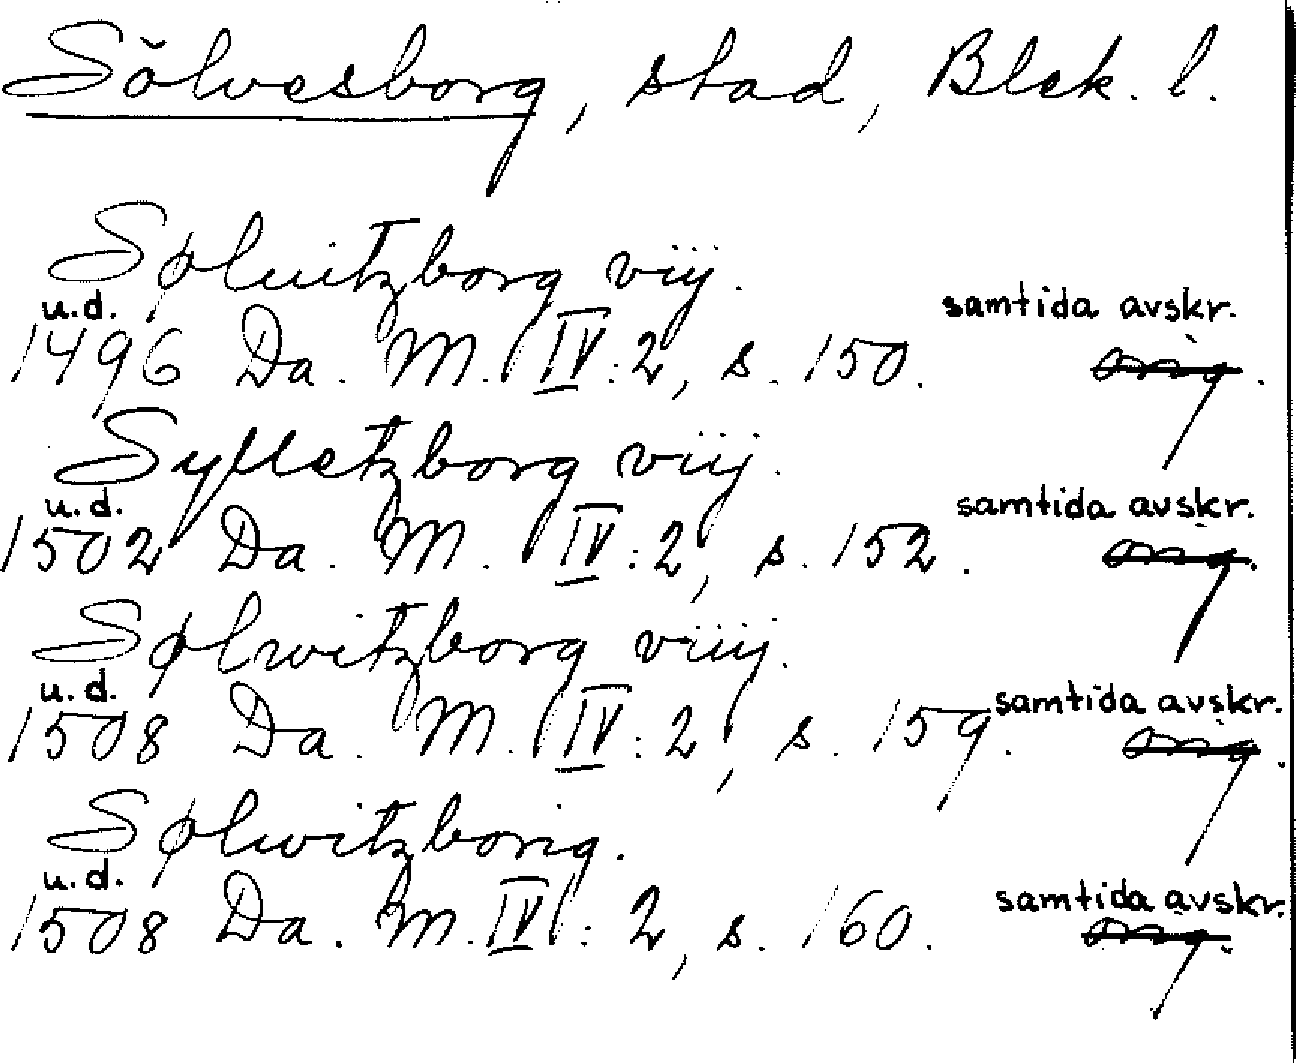 Sölvesborg, stad, Blek. l.
Søluitzborg vij.
u.d. samtida avskr.
1496 Da. M. IV:2, s. 150. orig.
Sylletzborg viij.
u.d. samtida avskr.
1502 Da. M. IV:2, s. 152. orig.
Sølwitzborg viiij.
u.d. samtida avskr.
1508 Da. M. IV:2, s. 159. orig.
Sølwitzborig.
u.d. samtida avskr.
1508 Da. M. IV:2, s. 160. orig.